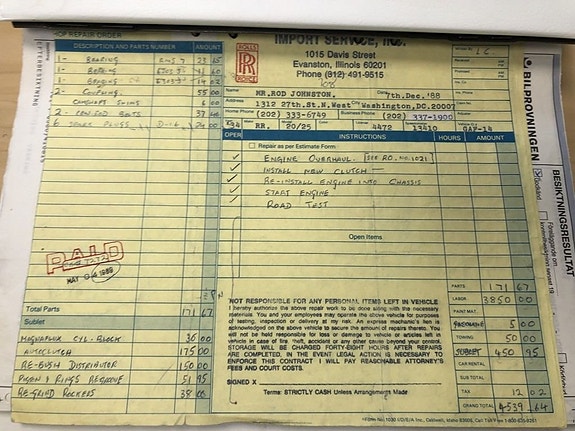 OP REPAIR ORDER
DESCRIPTION AND PARTS NUMBER AMOUNT
1- BEARING RMS 7 23 65
1- BEARING
1- BEARING 14 02
2- COUPLING 55 00
CAMSHAFT SHIMS 6 00
2- CON ROD BOLTS 37
6 SPARK PLUGS D-16 24 00
PAID
MAY 04 1989
Total Parts 171 67
Sublet
MAGNAFLUX CYL. BLOCK 36 00
AUTOCLUTCH 175 00
RE-BUSH DISTRIBUTOR 150 00
PISTON & RINGS REMOVE 51 95
RE-GRIND ROCKERS 38 00
ROLLS
RR
ROYCE
IMPORT SERVICE, INC.
1015 Davis Street
Evanston, Illinois 60201
Phone (312) 491-9515
Name MR.ROD JOHNSTON. Date 7th.Dec.'88
Address 1312 27th.St.N.West City Washington,DC.20007
Home Phone (202) 333-6749 Business Phone (202) 337-1900
RR. 20/25 4472 13410 GAF-14
OPER INSTRUCTIONS HOURS AMOUNT
Repair as per Estimate Form
✓ ENGINE OVERHAUL. (SEE RO. NO. 1021)
✓ INSTALL NEW CLUTCH
✓ RE-INSTALL ENGINE INTO CHASSIS
✓ START ENGINE
ROAD TEST
Open Items
NOT RESPONSIBLE FOR ANY PERSONAL ITEMS LEFT IN VEHICLE
I hereby authorize the above repair work to be done along with the necessary
materials. You and your employees may operate the above vehicle for purposes
of testing, inspection or delivery at my risk. An express mechanic's lien is
acknowledged on the above vehicle to secure the amount of repairs thereto. You will
not be held responsible for loss or damage to vehicle or articles left in
vehicle in case of fire, theft, accident or any other cause beyond your control.
STORAGE WILL BE CHARGED FORTY-EIGHT HOURS AFTER REPAIRS
ARE COMPLETED. IN THE EVENT LEGAL ACTION IS NECESSARY TO
ENFORCE THIS CONTRACT I WILL PAY REASONABLE ATTORNEY'S
FEES AND COURT COSTS.
SIGNED X
Terms: STRICTLY CASH Unless Arrangements Made
PARTS 171 67
LABOR 3850 00
PAINT MAT.
5 00
TOWING 50 00
SUBLET 450 95
CAR RENTAL
SUB TOTAL
TAX 12 02
GRAND TOTAL 4539 64
BILPROVNINGEN
BESIKTNINGSRESULTAT
Godkänd
Föreläggande om
EFTERBESIKTNING